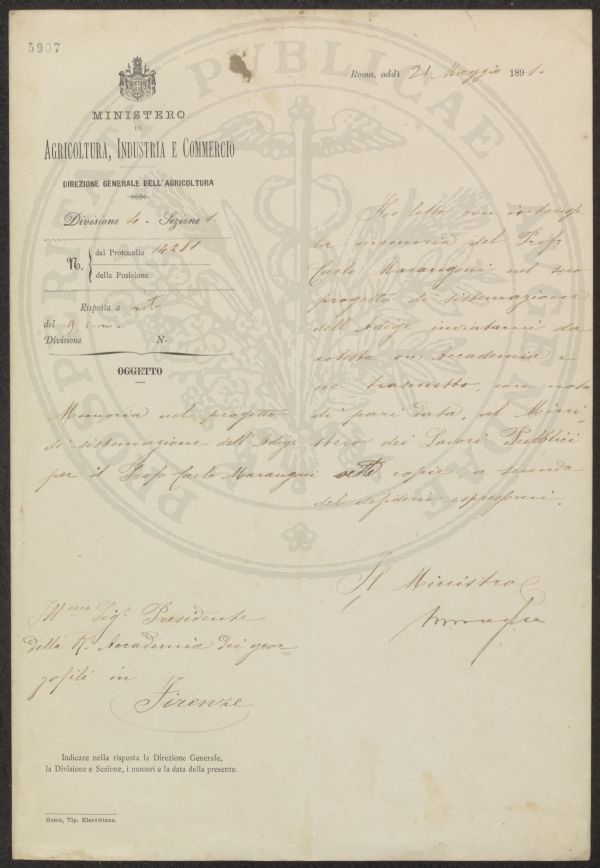 5907
MINISTERO
DI
AGRICOLTURA, INDUSTRIA E COMMERCIO
DIREZIONE GENERALE DELL'AGRICOLTURA
Divisione 4. Sezione 1.
N. del Protocollo 14281
della Posizione
Risposta a nota
del 9 c.m.
Divisione N.
OGGETTO
Memoria sul progetto
di sistemazione dell'Adige
per il Prof. Carlo Marangoni
Roma, addì 21 Maggio 1891.
Ho letto con interesse
la memoria del Prof.
Carlo Marangoni sul suo
progetto di sistemazione
dell'Adige inviatami da
cotesta on. Accademia e
ne trasmetto, con nota
di pari data, al Mini-
stero dei Lavori Pubblici
sette copie, a seconda
del desiderio espressomi.
Il Ministro
Ill.mo Sig. Presidente
della R. Accademia dei geor-
gofili in
Firenze
Indicare nella risposta la Direzione Generale,
la Divisione e Sezione, i numeri e la data della presente.
Roma, Tip. Elzeviriana.
PROSPERITATI PUBLICAE AUGENDAE